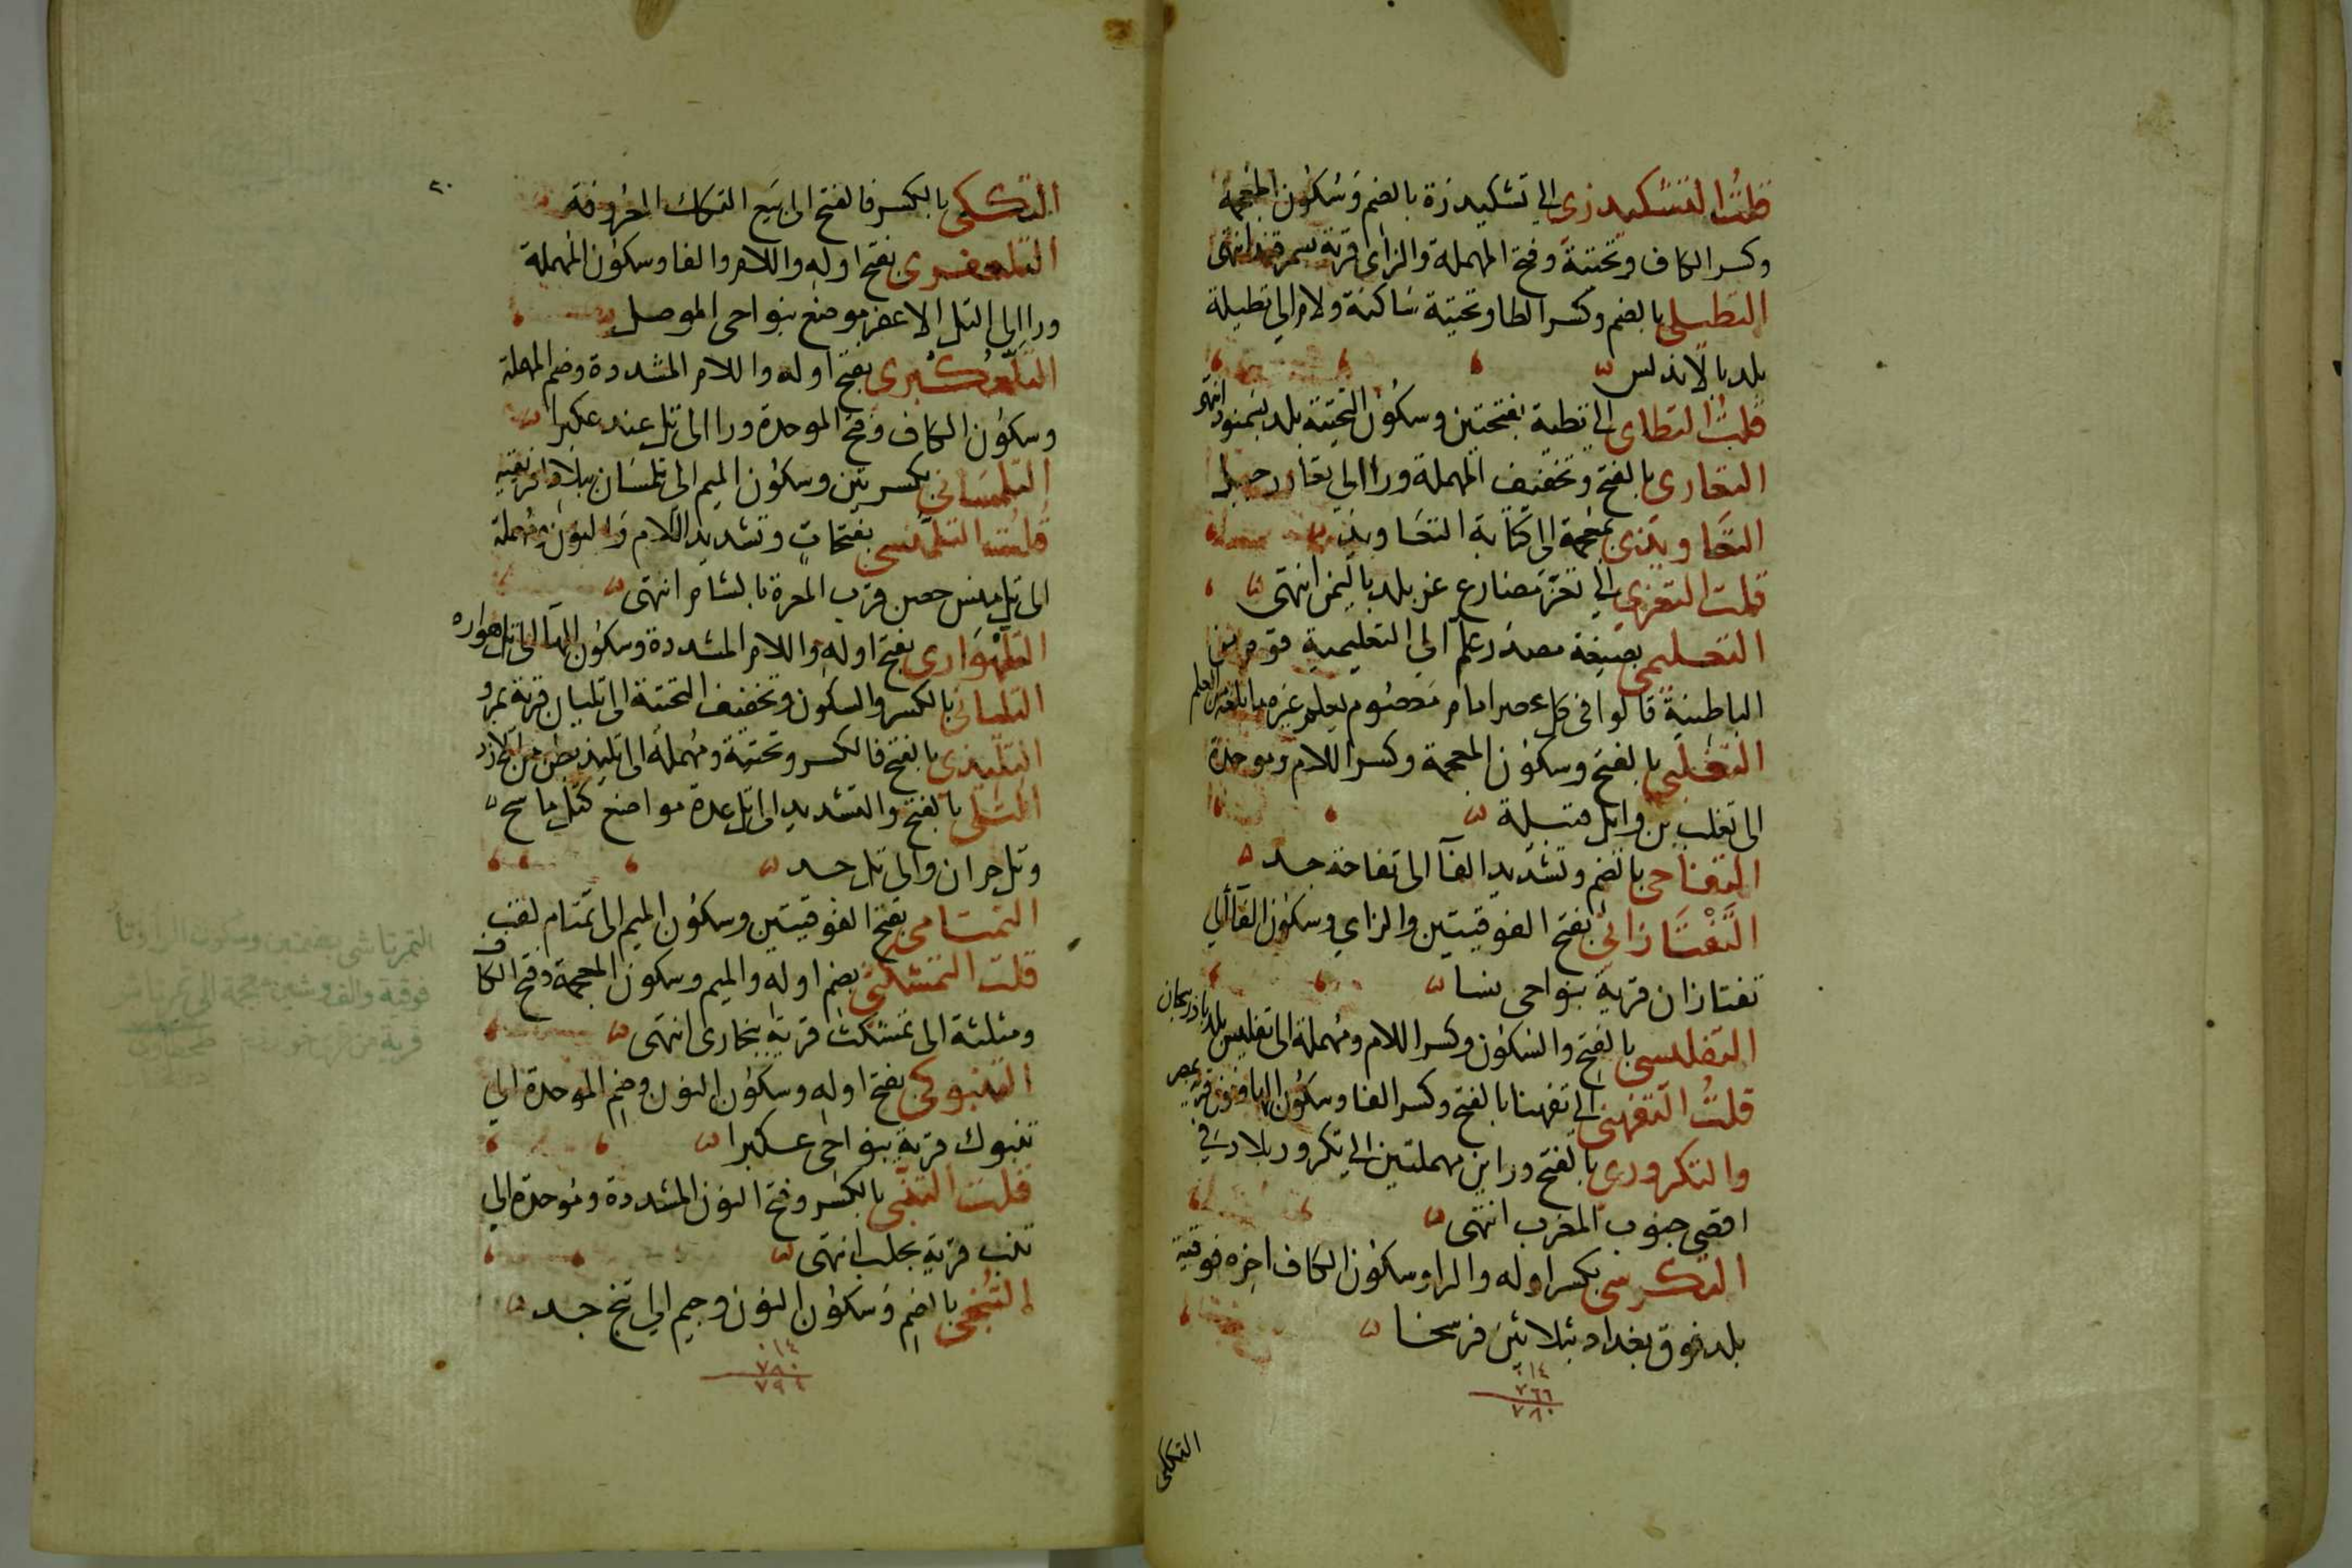 قلت التشكيدزى الى تشكيدزة بالضم وسكون المعجمة
وكسر الكاف وتحتية وفتح المهملة والزاى قرية بسمرقند انتهى
التطيلى بالضم وكسر الطا وتحتية ساكنة ولام الى تطيلة
بلد بالاندلس
قلت التطاى الى تطية بفتحتين وسكون التحتية بلد بسمنود انتهى
التعارى بالفتح وتخفيف المهملة ورا الى تعار جبل
التعاويذى بمعجمة الى كتابة التعاويذ
قلت التعزى الى تعز مضارع عز بلد باليمن انتهى
التعليمى بصيغة مصدر علم الى التعليمية قوم من
الباطنية قالوا فى كل عصر امام معصوم يعلم غيره ما بلغه من العلم
التغلبى بالفتح وسكون المعجمة وكسر اللام وموحدة
الى تغلب بن وايل قبيلة
التفاحى بالضم وتشديد الفآ الى تفاحة جد
التفتازانى بفتح الفوقيتين والزاي وسكون الفآ الى
تفتازان قرية بنواحى نسا
التفليسى بالفتح والسكون وكسر اللام ومهملة الى تفليس بلد باذربيجان
قلت التفهنى الى تفهنا بالفتح وكسر الفا وسكون الها ونون قرية بمصر
والتكرورى بالفتح وراين مهملتين الى تكرور بلاد فى
اقصى جنوب المغرب انتهى
التكريتى بكسر اوله والرا وسكون الكاف اخره فوقية
بلد فوق بغداد بثلاثين فرسخا
٠١٤
٧٦٦
٧٨٠
التككى
٢٠
التككى بالكسر فالفتح الى بيع التكك المعروفة
التلعفرى بفتح اوله واللام والفا وسكون المهملة
ورا الى التل الاعفر موضع بنواحى الموصل
التلعكبرى بفتح اوله واللام المشددة وضم المهملة
وسكون الكاف وفتح الموحدة ورا الى تل عند عكبرا
التلمسانى بكسرتين وسكون الميم الى تلمسان ببلاد افريقية
قلت التلمنسى بفتحات وتشديد اللام والنون ومهملة
الى تل منس حصن قرب المعرة بالشام انتهى
التلهوارى بفتح اوله واللام المشددة وسكون الهآ الى تل هواره
التليانى بالكسر والسكون وتخفيف التحتية الى تليان قرية بمرو
التليدى بالفتح فالكسر وتحتية ومهملة الى تليد بطن من الازد
التلى بالفتح والتشديد الى تل عدة مواضع كتل ماسح
وتل حران والى تل جد
التمتامى بفتح الفوقيتين وسكون الميم الى تمتام لقب
قلت التمشكثى بضم اوله والميم وسكون المعجمة وفتح الكاف
ومثلثة الى تمشكث قرية ببخارى انتهى
التنبوكى بفتح اوله وسكون النون وضم الموحدة الى
تنبوك قرية بنواحى عكبرا
قلت التنبى بالكسر وفتح النون المشددة وموحدة الى
تنب قرية بحلب انتهى
التنجى بالضم وسكون النون وجيم الى تنج جد
٠١٤
٧٨٠
٧٩٤
التمرتاشى بضمتين وسكون الرا وتا
فوقية والف وشين معجمة الى تمرتاش
قرية من قرى خوارزم